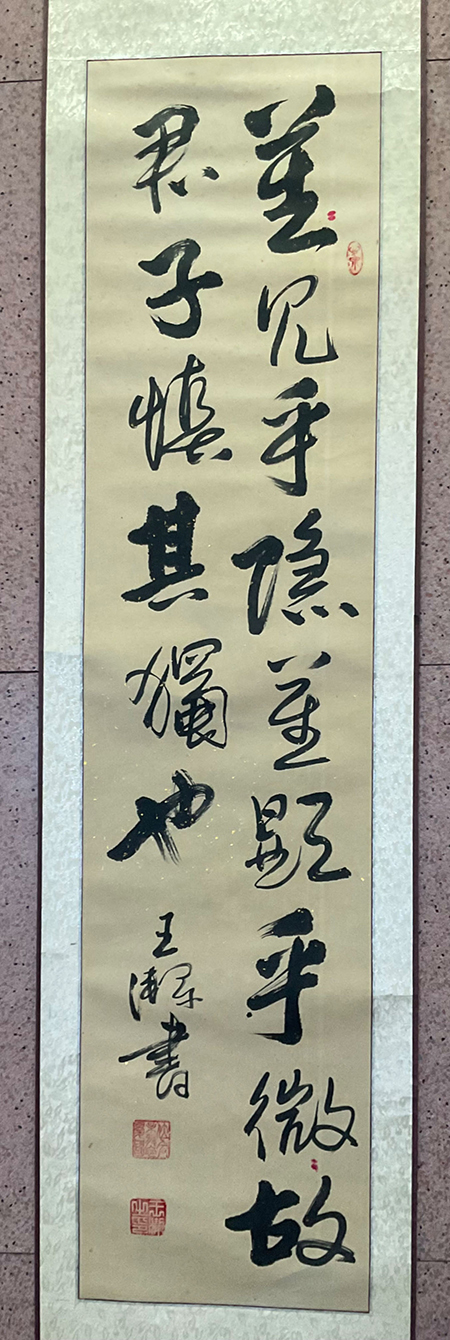 莫見乎隐莫顯乎微故
君子慎其獨也
王 書